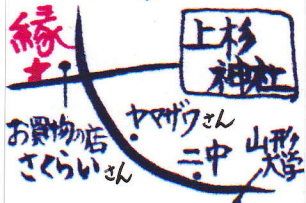 縁
上杉
神社
お買物の店
さくらいさん
ヤマザワさん
二中
山形
大学